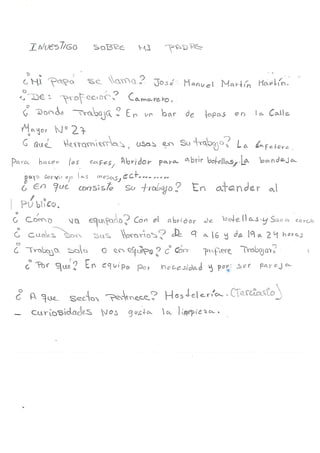 INVESTIGO SOBRE MI PADRE
¿Mi Papá se llama? José Manuel Martín Martín.
¿De: profecion? Camarero.
¿Donde Trabaja? En un bar de tapas en la Calle
Mayor Nº 27
¿ Qué Herramientas, usas en su trabajo? La cafetera.
Para hacer los cafes, Abridor para abrir botellas, La bandeja
para servir en las mesas, ect..........
¿ En que consiste su trabajo? En atender al
Público.
¿ Cómo va equipado? Con el abridor de botellas y
¿ Cuales son sus Horarios? de 9 a 16 y de 19 a 24 horas
¿ Trabaja solo o en equipo? ¿ Cón prefiere Trabajar?
¿ Por qué? En equipo por necesidad y por ser pareja
¿ A que sector Pertenece? Hostelería. (Terciario)
- curiosidades Nos gusta la limpieza.